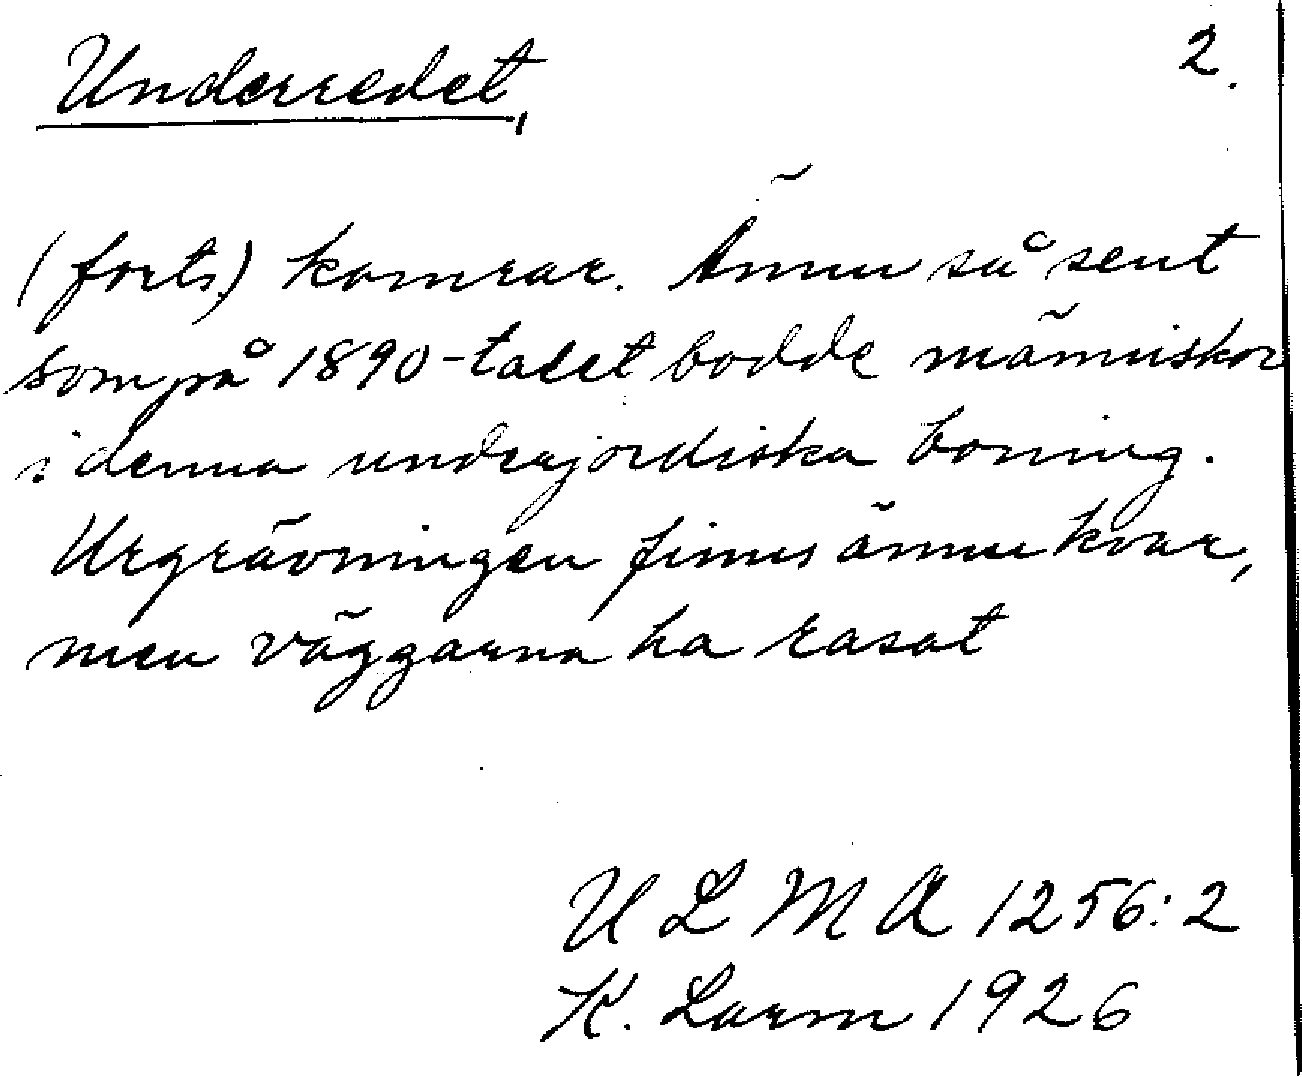 Underredet,
2.
(forts.) kamrar. Ännu så sent
som på 1890-talet bodde människor
i denna underjordiska boning.
Urgrävningen finns ännu kvar,
men väggarna ha rasat
U L M A 1256:2
K. Larm 1926